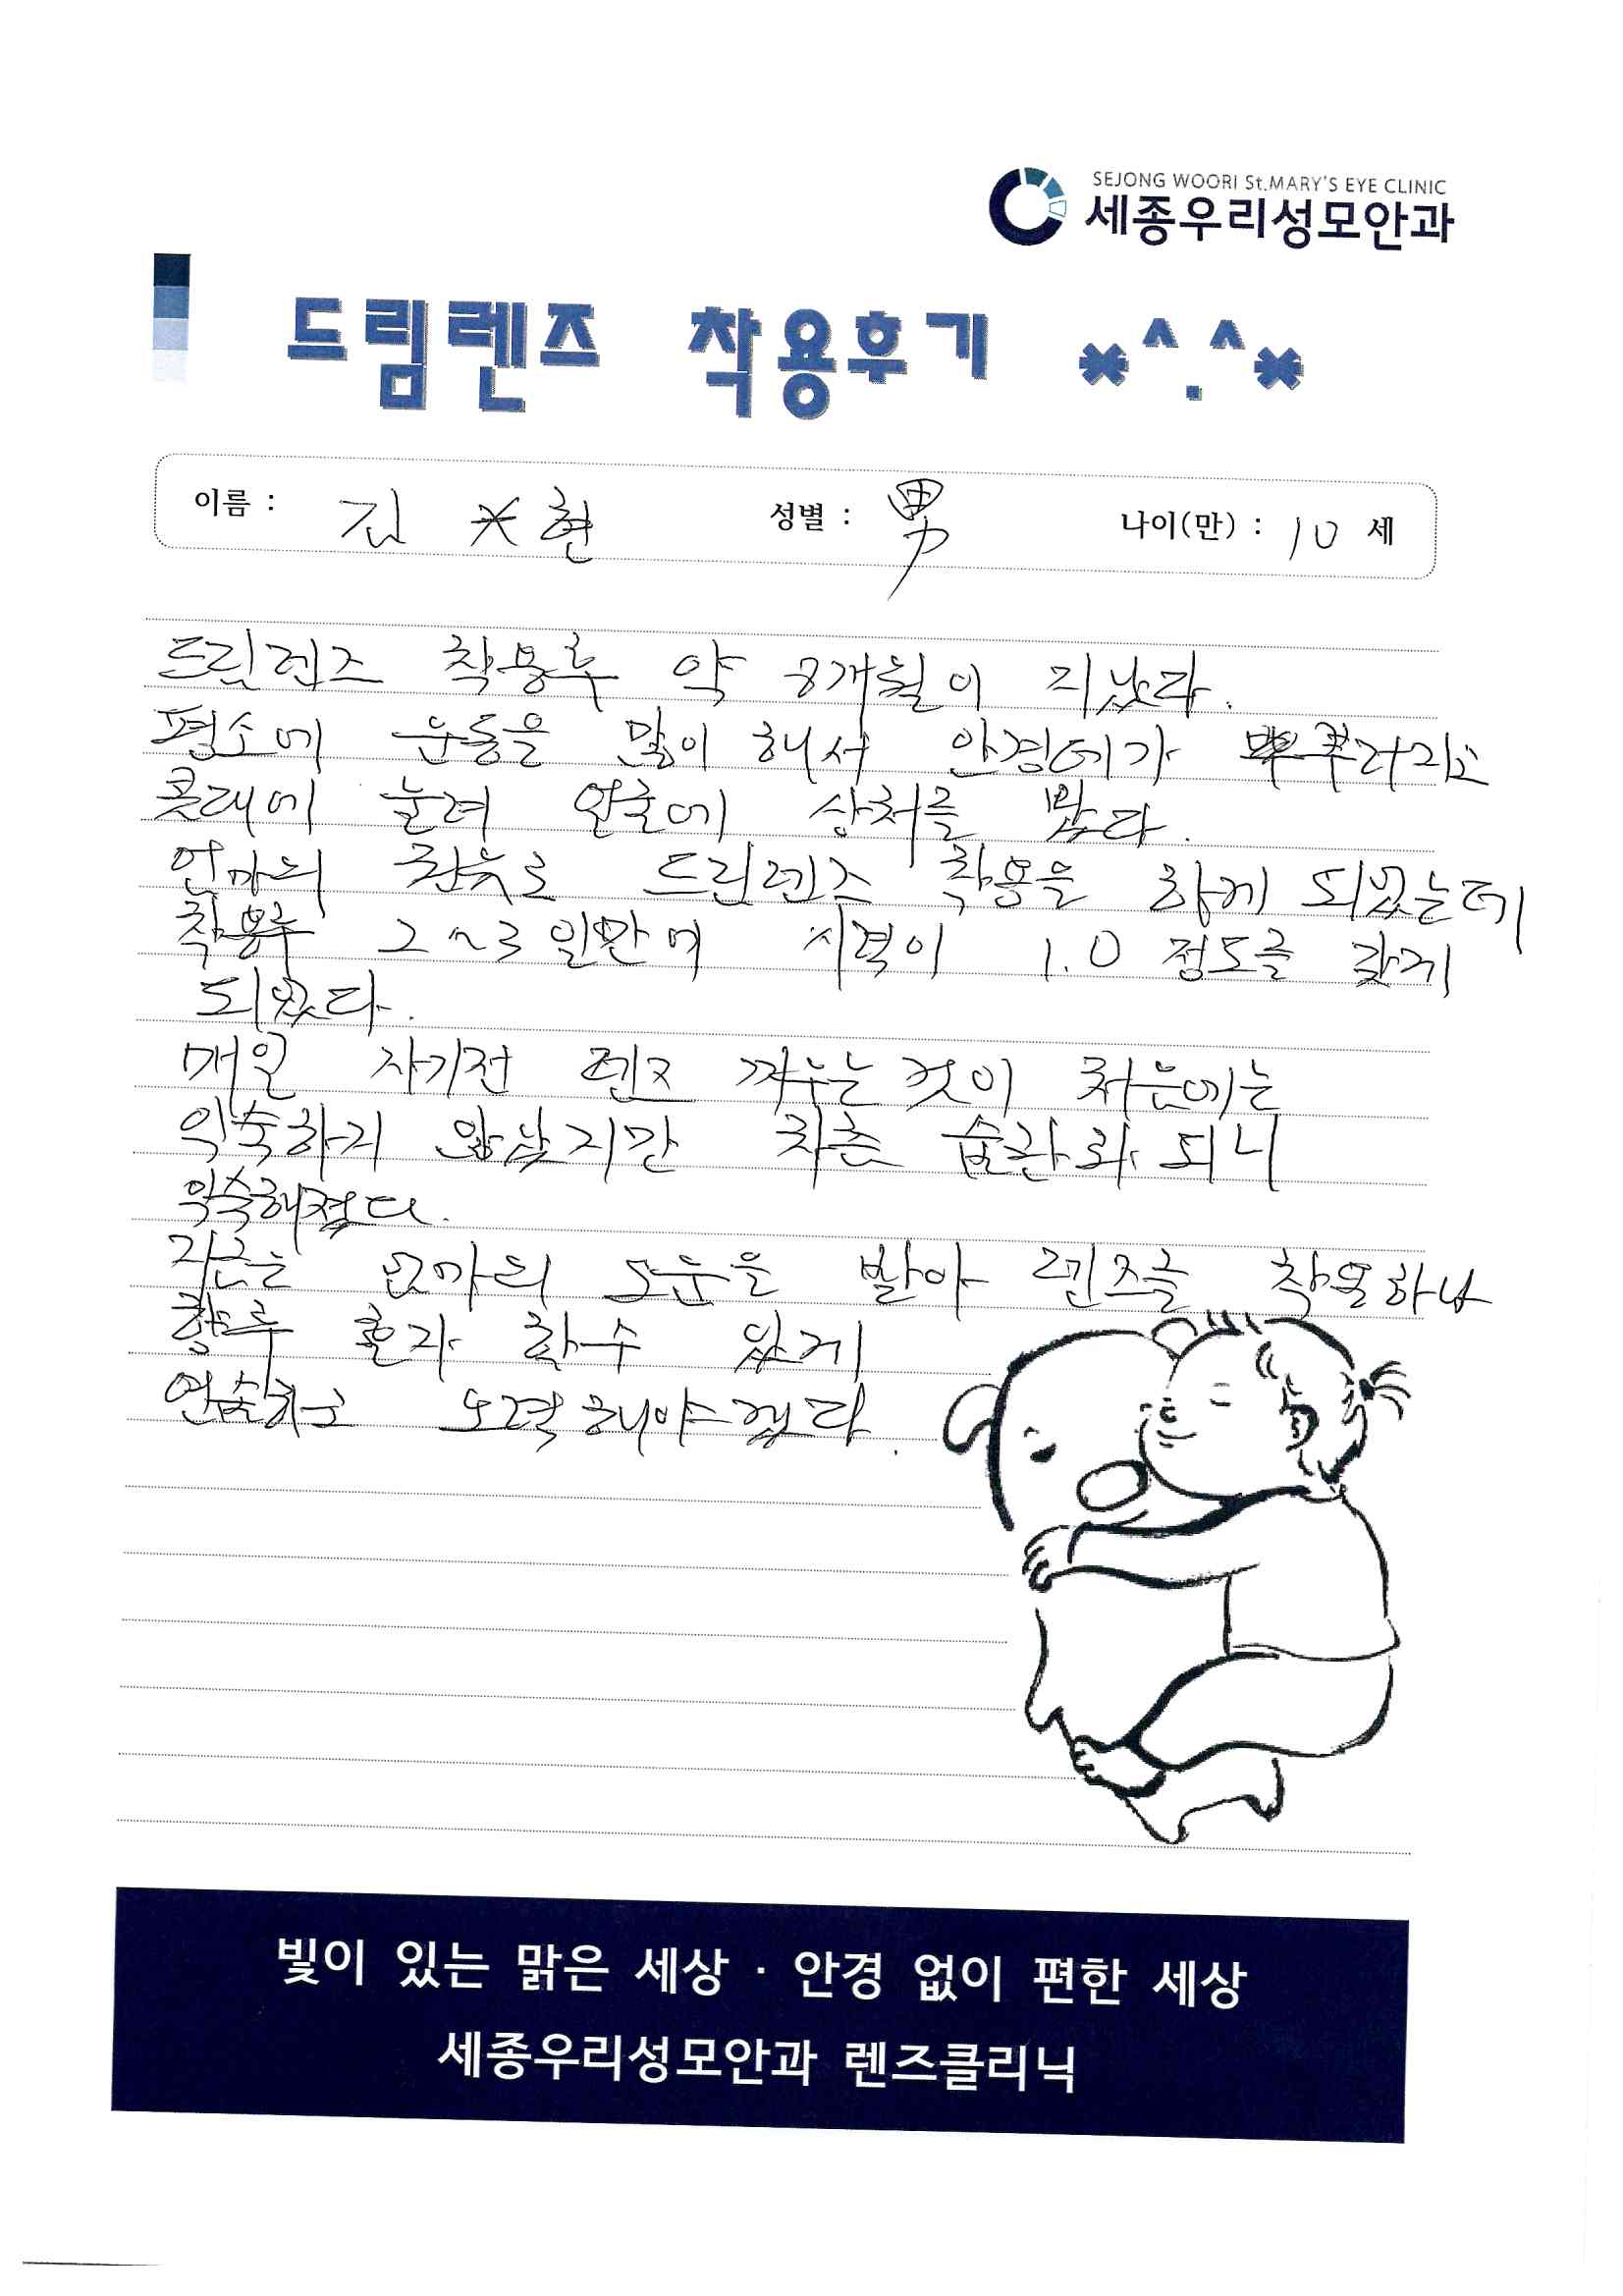 SEJONG WOORI St.MARY'S EYE CLINIC
세종우리성모안과
드림렌즈 착용후기 *^.^*
이름 : 김 *현 성별 : 男 나이(만) : 10 세
드림렌즈 착용후 약 8개월이 지났다.
평소에 운동을 많이 해서 안경테가 뿌러지고
콧대에 눌려 얼굴에 상처를 봤다.
엄마의 권유로 드림렌즈 착용을 하게 되었는데
착용후 2~3일만에 시력이 1.0 정도를 갖게
되었다.
매일 자기전 렌즈 끼우는 것이 처음에는
익숙하지 않았지만 차츰 습관화 되니
익숙해졌다.
지금은 엄마의 도움을 받아 렌즈를 착용하나
향후 혼자 할수 있게
연습하고 노력해야겠다.
빛이 있는 맑은 세상 · 안경 없이 편한 세상
세종우리성모안과 렌즈클리닉